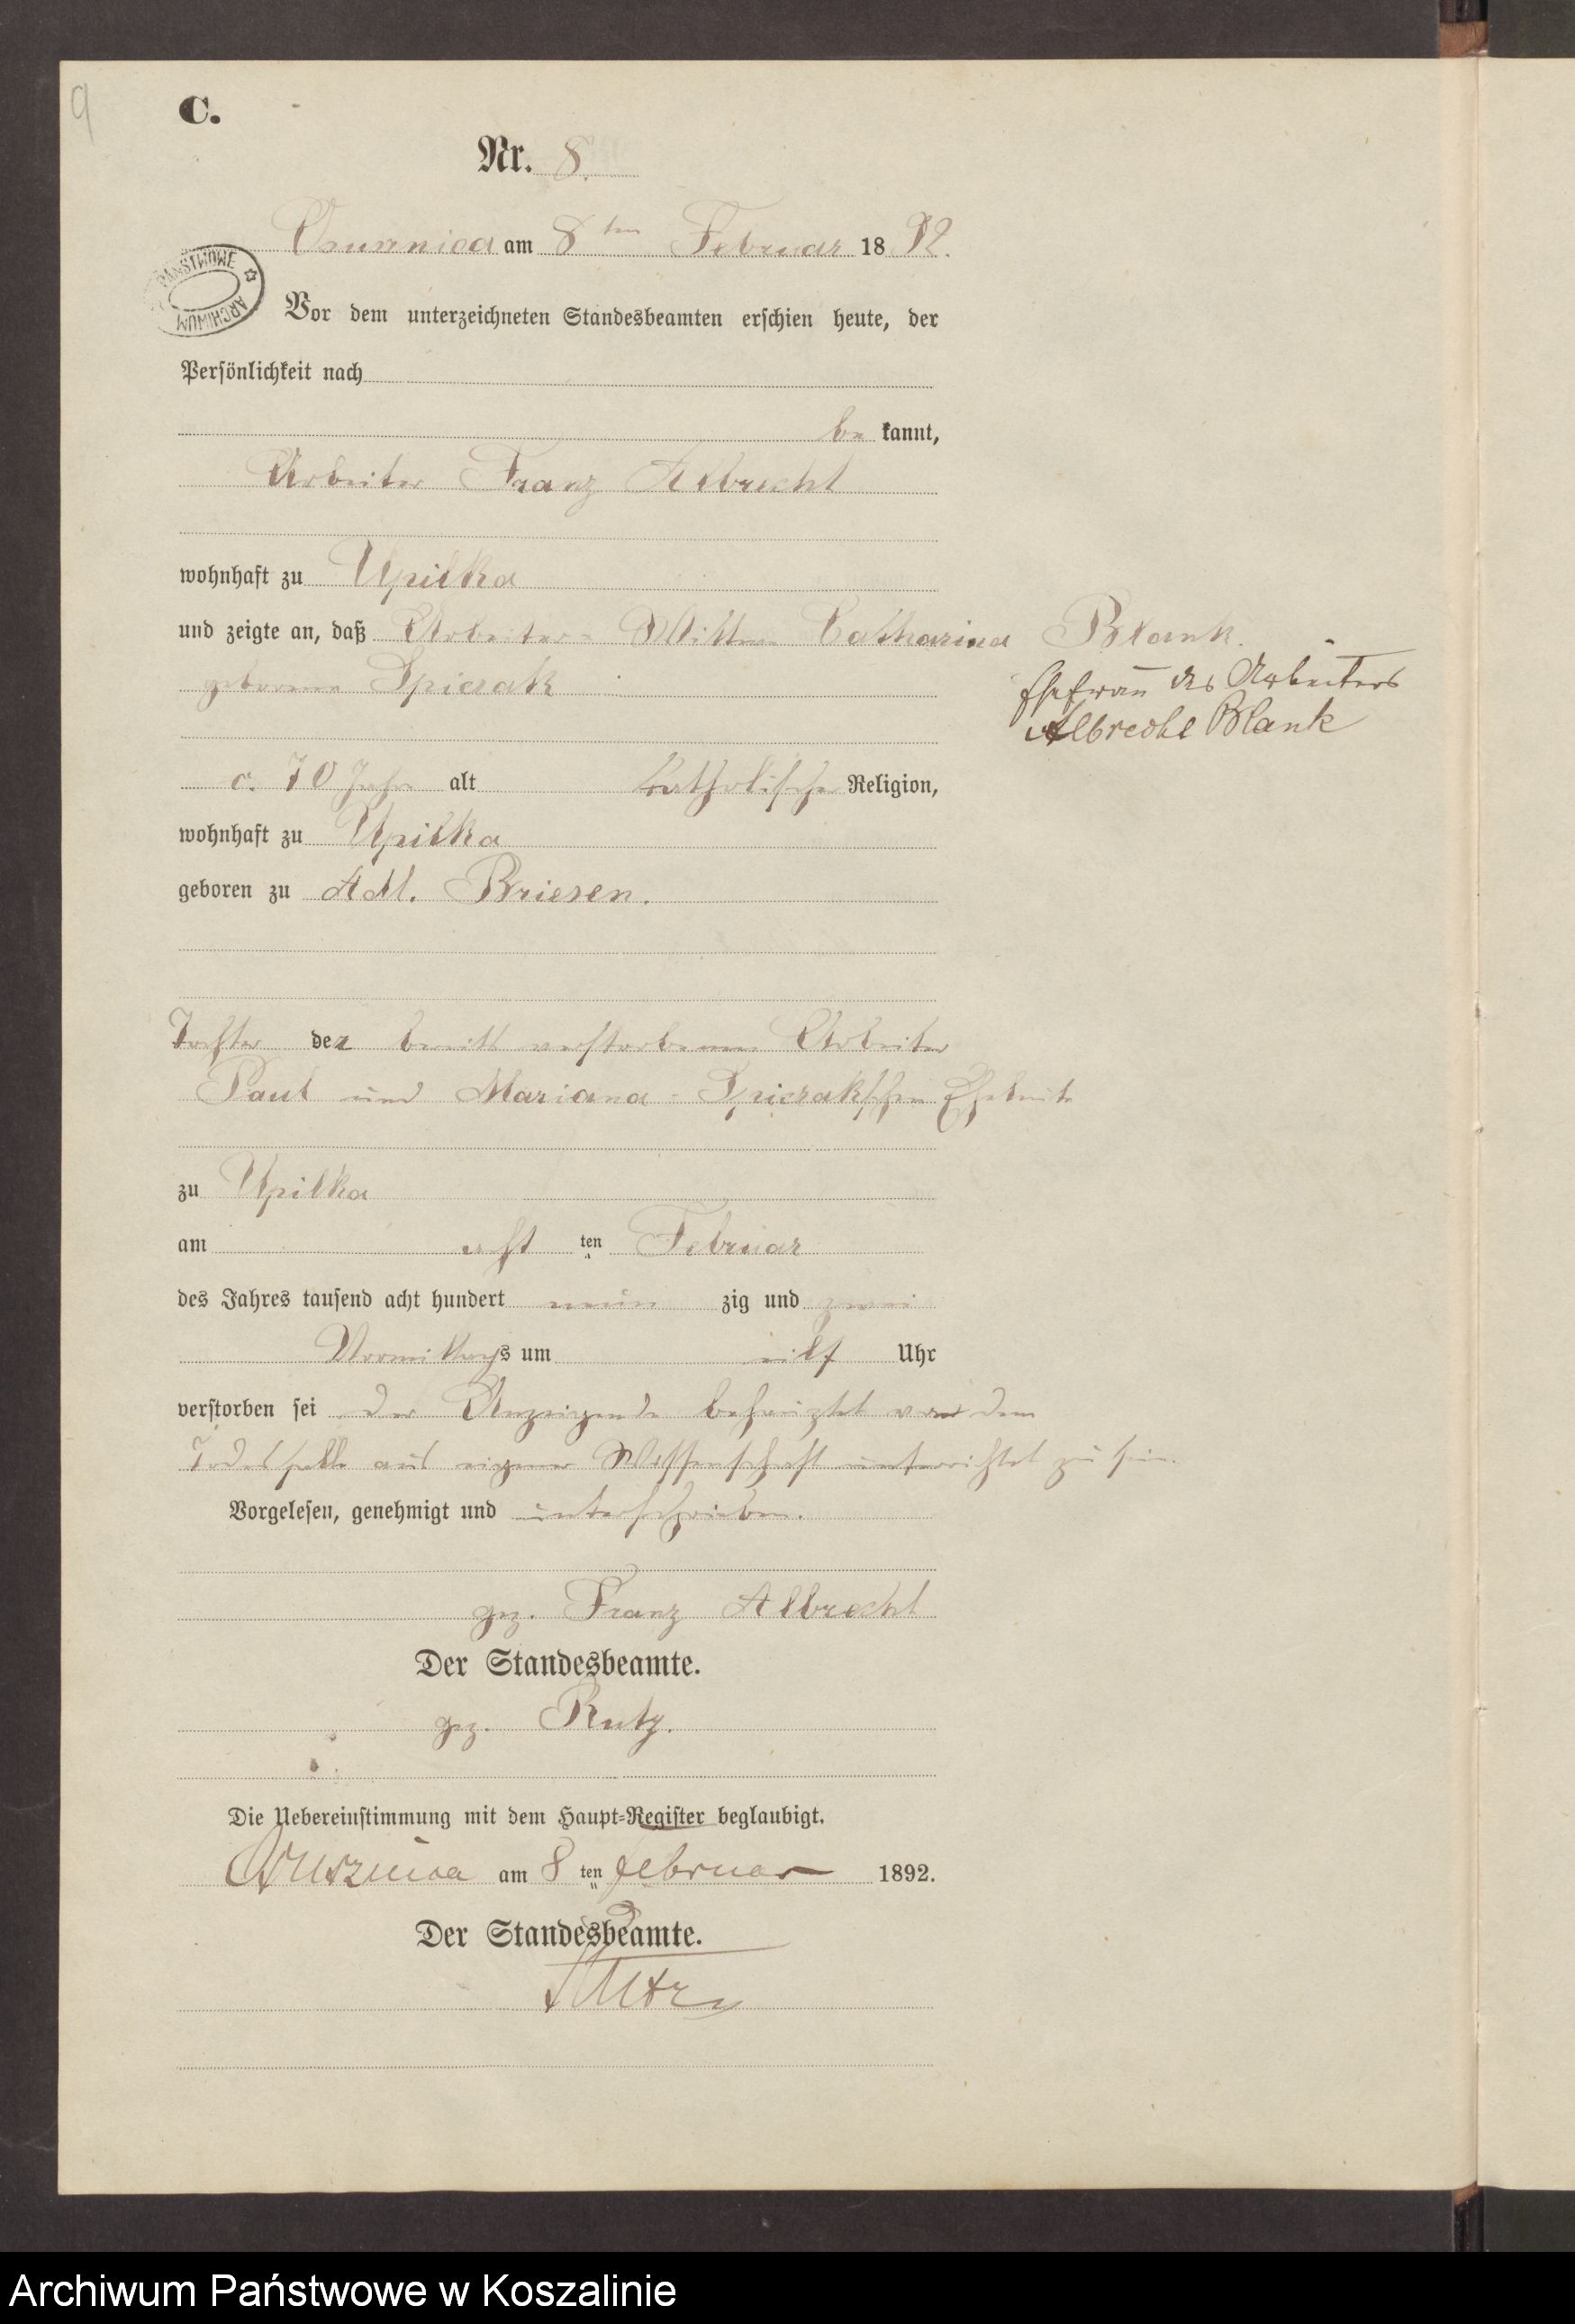 9
C.
Nr. 8.
Osusznica am 8ten Februar 1892.
PAŃSTWOWE ARCHIWUM
Vor dem unterzeichneten Standesbeamten erschien heute, der
Persönlichkeit nach
be kannt,
Arbeiter Franz Albrecht
wohnhaft zu Upilka
und zeigte an, daß Arbeiter-Wittwe Catharina Blank.
geborene Spicrak
Ehefrau des Arbeiters
Albrecht Blank
c. 70 Jahre alt katholischer Religion,
wohnhaft zu Upilka
geboren zu Adl. Briesen.
Tochter der bereits verstorbenen Arbeiter
Paul und Mariana Spicrakschen Eheleute
zu Upilka
am acht ten Februar
des Jahres tausend acht hundert neun zig und zwei
Vormittags um eilf Uhr
verstorben sei der Anzeigende bescheinigt von dem
Todesfalle aus eigener Wissenschaft unterrichtet zu sein.
Vorgelesen, genehmigt und unterschrieben.
gez. Franz Albrecht
Der Standesbeamte.
gez. Rutz.
Die Uebereinstimmung mit dem Haupt-Register beglaubigt.
Osusznica am 8 ten Februar 1892.
Der Standesbeamte.
Rutz
Archiwum Państwowe w Koszalinie